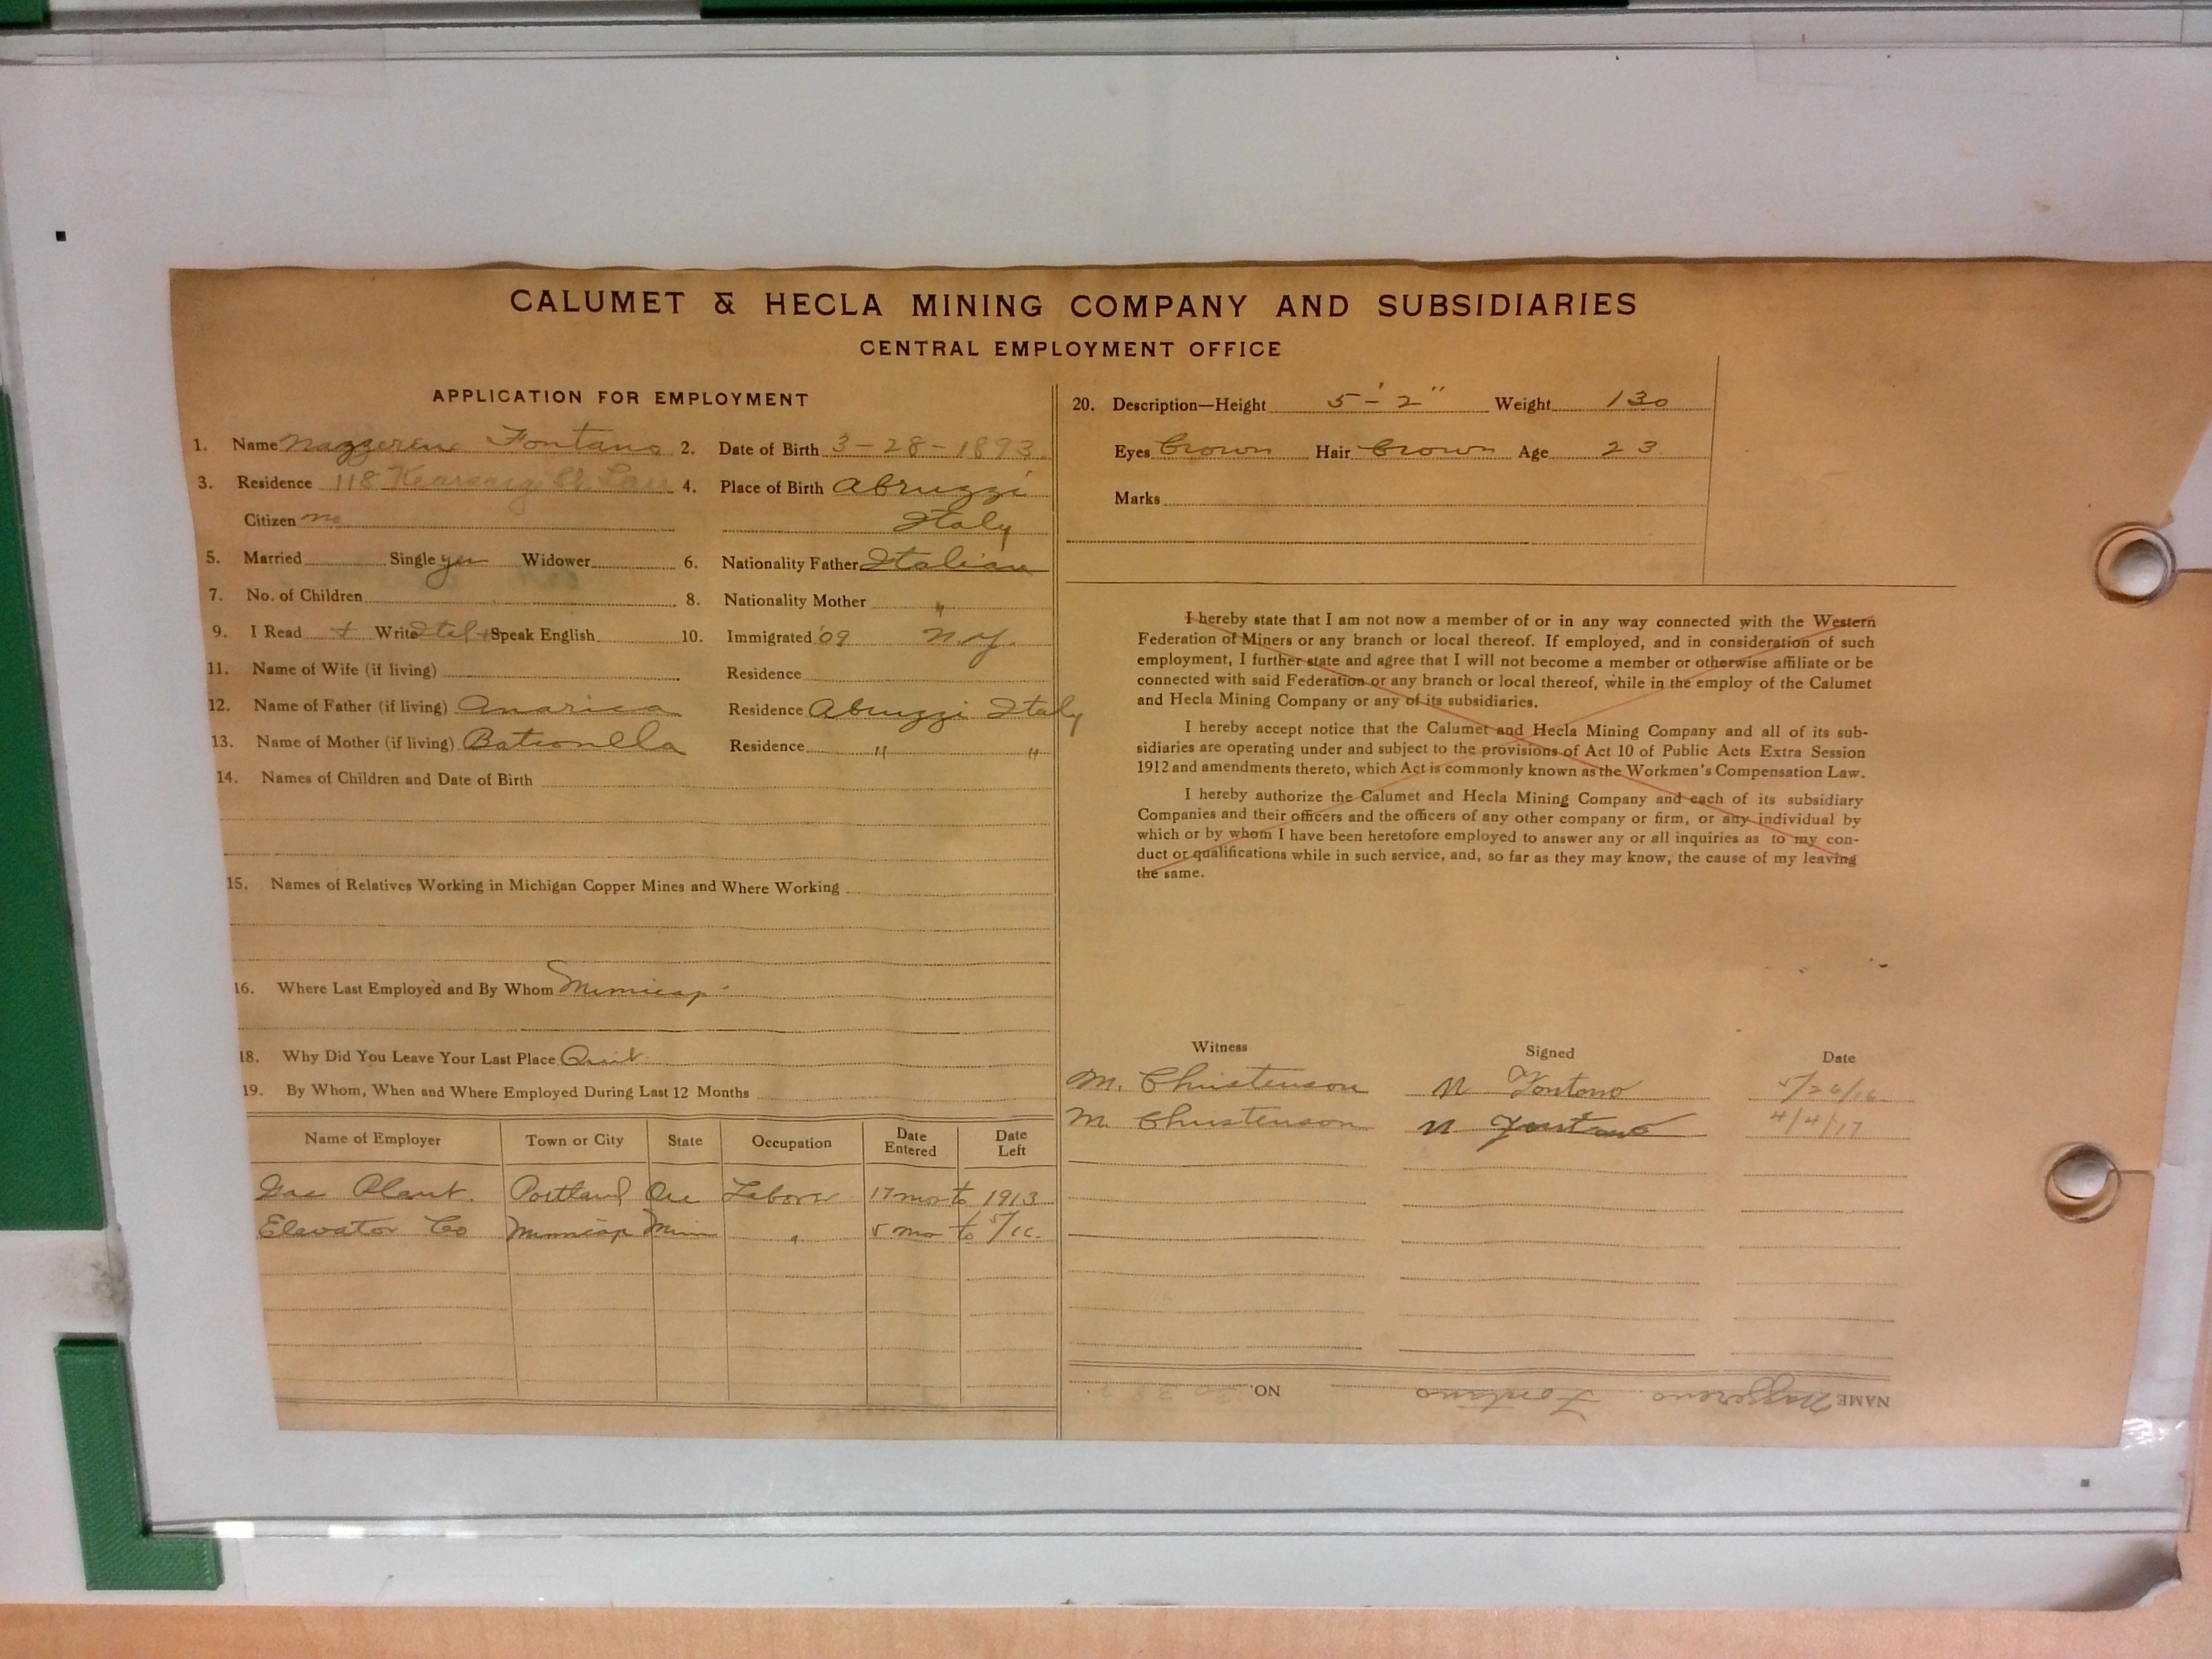 CALUMET & HECLA MINING COMPANY AND SUBSIDIARIES
CENTRAL EMPLOYMENT OFFICE
APPLICATION FOR EMPLOYMENT
1. Name Nazzereno Fontano 2. Date of Birth 3-28-1893
3. Residence 118 Kearsarg St 4. Place of Birth Abruzzi
Citizen no Italy
5. Married Single yes Widower 6. Nationality Father Italian
7. No. of Children 8. Nationality Mother "
9. I Read + Write Ital + Speak English 10. Immigrated '09 N.Y.
11. Name of Wife (if living) Residence
12. Name of Father (if living) Residence Abruzzi Italy
13. Name of Mother (if living) Residence " "
14. Names of Children and Date of Birth
15. Names of Relatives Working in Michigan Copper Mines and Where Working
16. Where Last Employed and By Whom Minneap
18. Why Did You Leave Your Last Place Quit
19. By Whom, When and Where Employed During Last 12 Months
Name of Employer Town or City State Occupation Date Entered Date Left
Gas Plant. Portland Ore Laborer 17 mos to 1913
Elevator Co Minneap Minn " 5 mo to 5/16.
20. Description—Height 5'-2" Weight 130
Eyes Brown Hair Brown Age 23
Marks
I hereby state that I am not now a member of or in any way connected with the Western
Federation of Miners or any branch or local thereof. If employed, and in consideration of such
employment, I further state and agree that I will not become a member or otherwise affiliate or be
connected with said Federation or any branch or local thereof, while in the employ of the Calumet
and Hecla Mining Company or any of its subsidiaries.
I hereby accept notice that the Calumet and Hecla Mining Company and all of its sub-
sidiaries are operating under and subject to the provisions of Act 10 of Public Acts Extra Session
1912 and amendments thereto, which Act is commonly known as the Workmen's Compensation Law.
I hereby authorize the Calumet and Hecla Mining Company and each of its subsidiary
Companies and their officers and the officers of any other company or firm, or any individual by
which or by whom I have been heretofore employed to answer any or all inquiries as to my con-
duct or qualifications while in such service, and, so far as they may know, the cause of my leaving
the same.
Witness Signed Date
M. Christenson N Fontono 5/26/16
M. Christenson N Fontano 4/4/17
NAME Nazzereno Fontano NO.